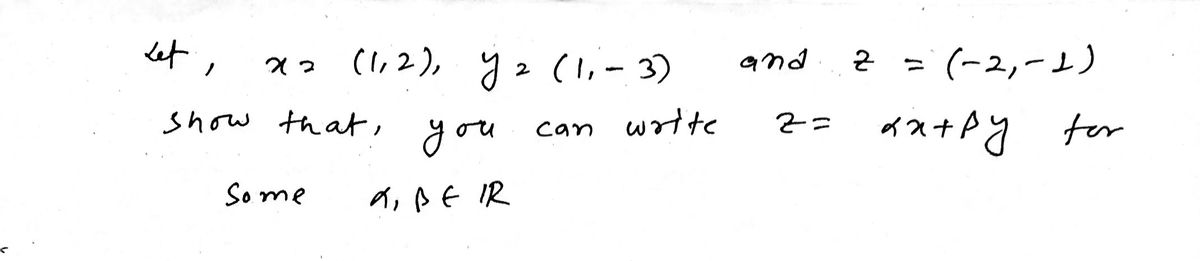 Let, x = (1,2), y = (1,-3) and z = (-2,-1)
show that, you can write z = αx+βy for
Some α, β ∈ ℝ